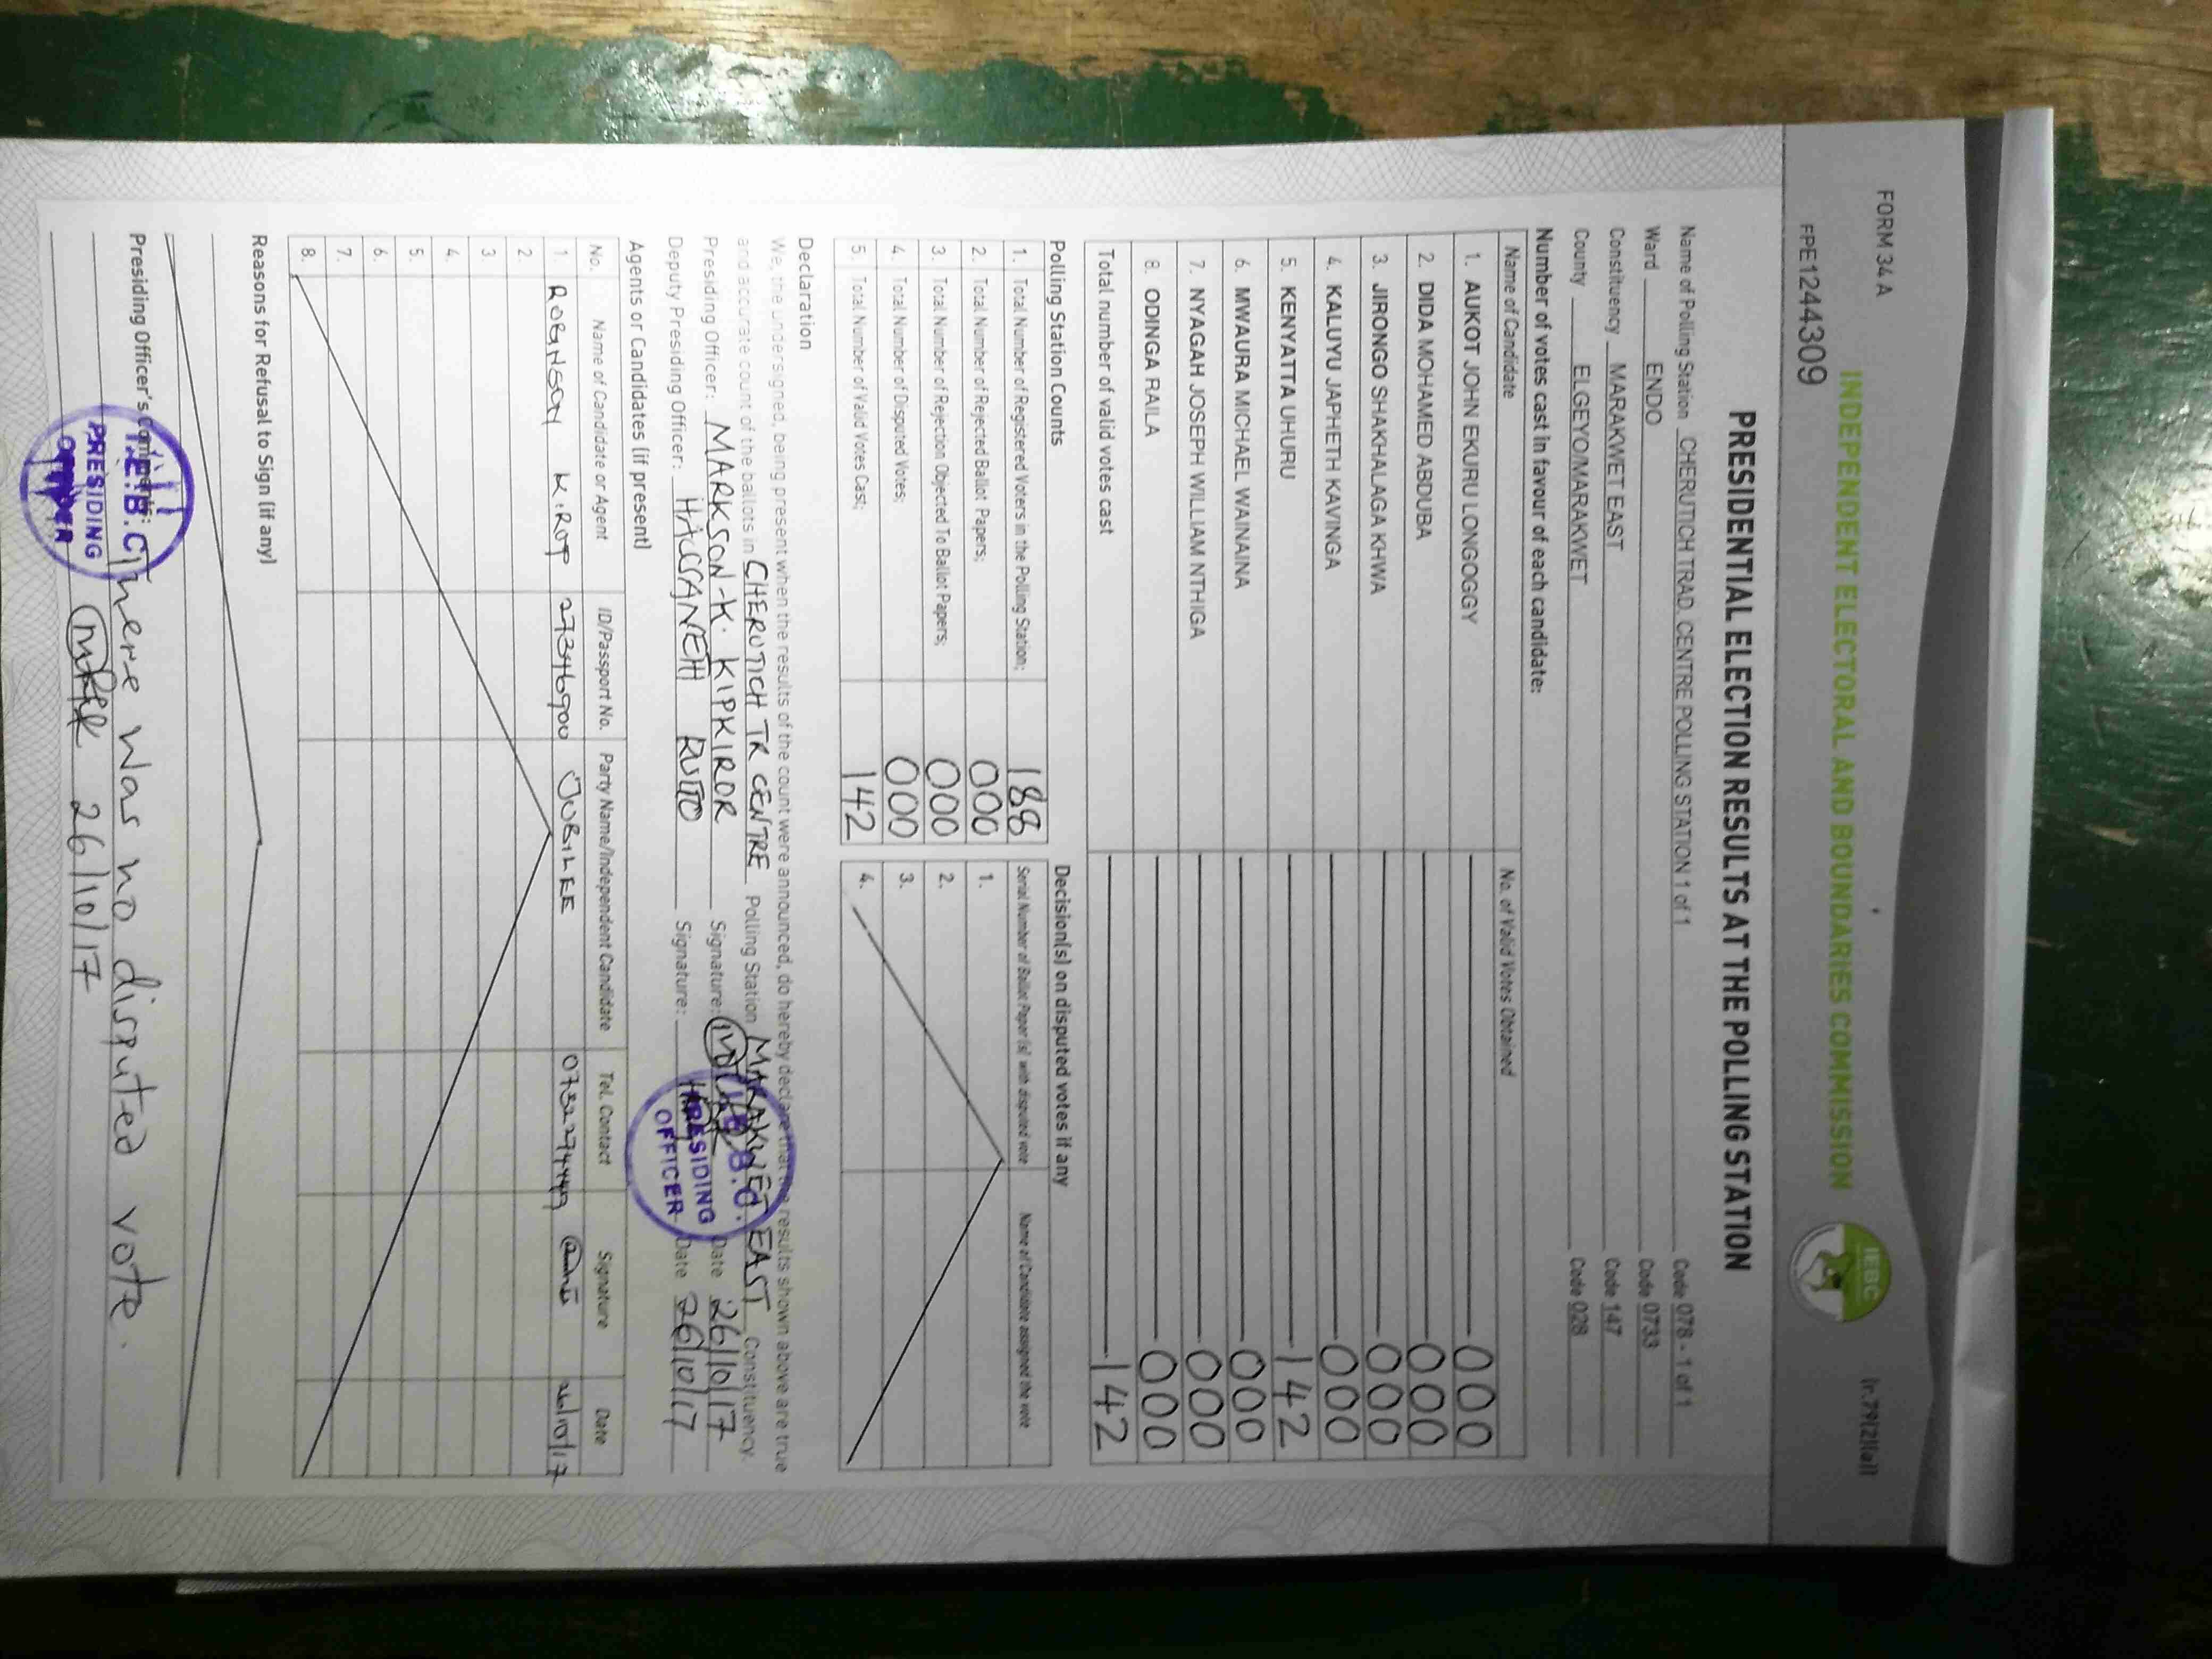 FORM 34A
(r.79(2)(a))
INDEPENDENT ELECTORAL AND BOUNDARIES COMMISSION
IEBC
FPE1244309
PRESIDENTIAL ELECTION RESULTS AT THE POLLING STATION
Name of Polling Station CHERUTICH TRAD. CENTRE POLLING STATION 1 of 1 Code 078 - 1 of 1
Ward ENDO Code 0733
Constituency MARAKWET EAST Code 147
County ELGEYO/MARAKWET Code 028
Number of votes cast in favour of each candidate:
Name of Candidate No. of Valid Votes Obtained
1. AUKOT JOHN EKURU LONGOGGY 000
2. DIDA MOHAMED ABDUBA 000
3. JIRONGO SHAKHALAGA KHWA 000
4. KALUYU JAPHETH KAVINGA 000
5. KENYATTA UHURU 142
6. MWAURA MICHAEL WAINAINA 000
7. NYAGAH JOSEPH WILLIAM NTHIGA 000
8. ODINGA RAILA 000
Total number of valid votes cast 142
Polling Station Counts
1. Total Number of Registered Voters in the Polling Station; 188
2. Total Number of Rejected Ballot Papers; 000
3. Total Number of Rejection Objected To Ballot Papers; 000
4. Total Number of Disputed Votes; 000
5. Total Number of Valid Votes Cast; 142
Decision(s) on disputed votes if any
Serial Number of Ballot Paper(s) with disputed vote Name of Candidate assigned the vote
1.
2.
3.
4.
Declaration
We, the undersigned, being present when the results of the count were announced, do hereby declare that the results shown above are true
and accurate count of the ballots in CHERUTICH TR CENTRE Polling Station MARAKWET EAST Constituency.
Presiding Officer: MARKSON-K. KIPKIROR Signature: Date 26/10/17
Deputy Presiding Officer: HASSANEH RUTTO Signature: Date 26/10/17
I.E.B.C.
PRESIDING
OFFICER
Agents or Candidates (if present)
No. Name of Candidate or Agent ID/Passport No. Party Name/Independent Candidate Tel. Contact Signature Date
1. ROBINSON KIROP 27346900 JUBILEE 26/10/17
2.
3.
4.
5.
6.
7.
8.
Reasons for Refusal to Sign (if any)
Presiding Officer's Comments: There was no disputed vote.
26/10/17
I.E.B.C.
PRESIDING
OFFICER